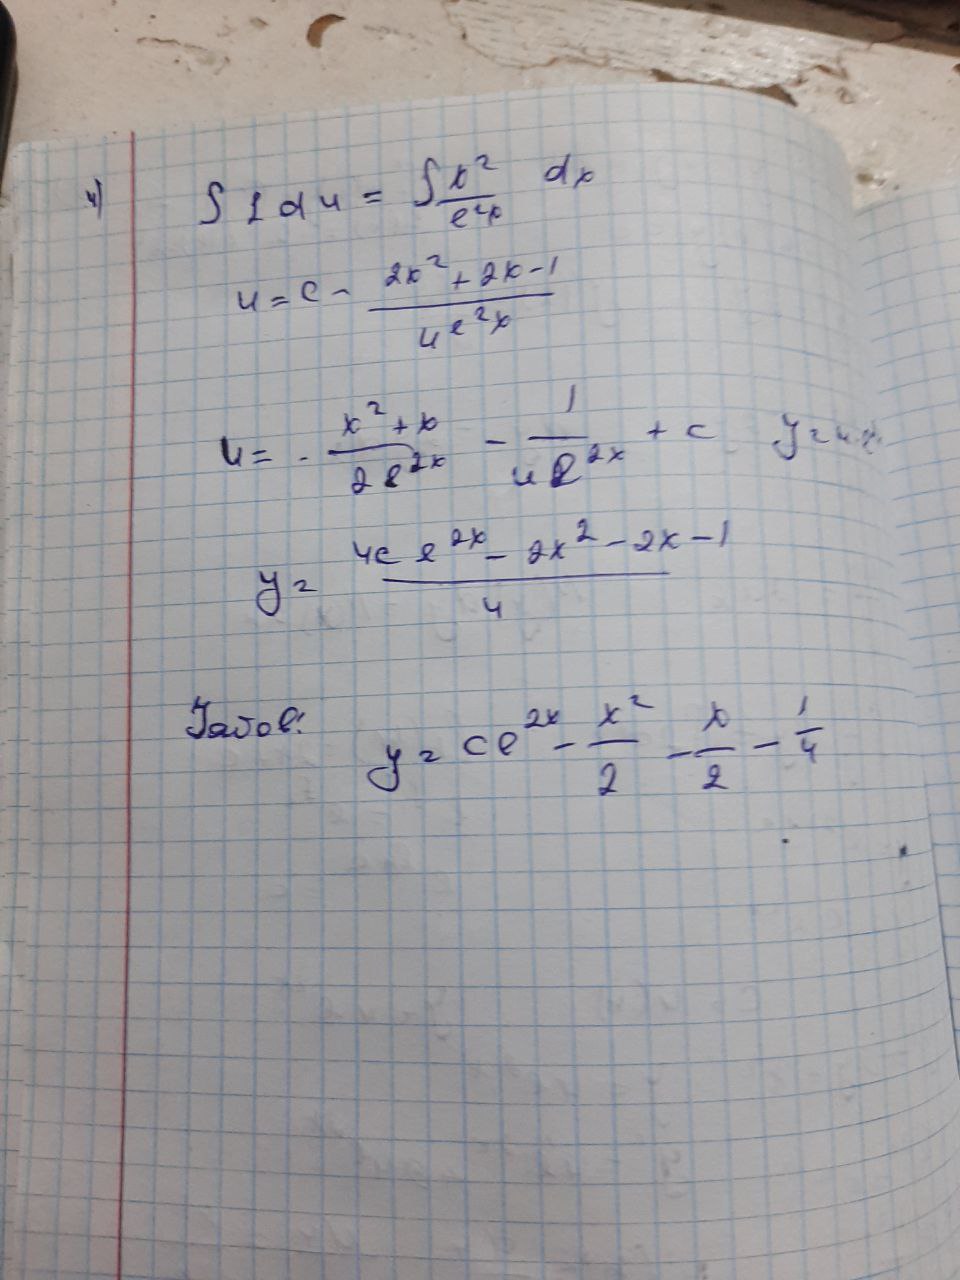 4) ∫ 1 du = ∫ x²/e²ˣ dx
u = c - (2x² + 2x - 1)/(4e²ˣ)
u = - (x² + x)/(2e²ˣ) - 1/(4e²ˣ) + c y = u·
y = (4c e²ˣ - 2x² - 2x - 1)/4
y = ce²ˣ - x²/2 - x/2 - 1/4